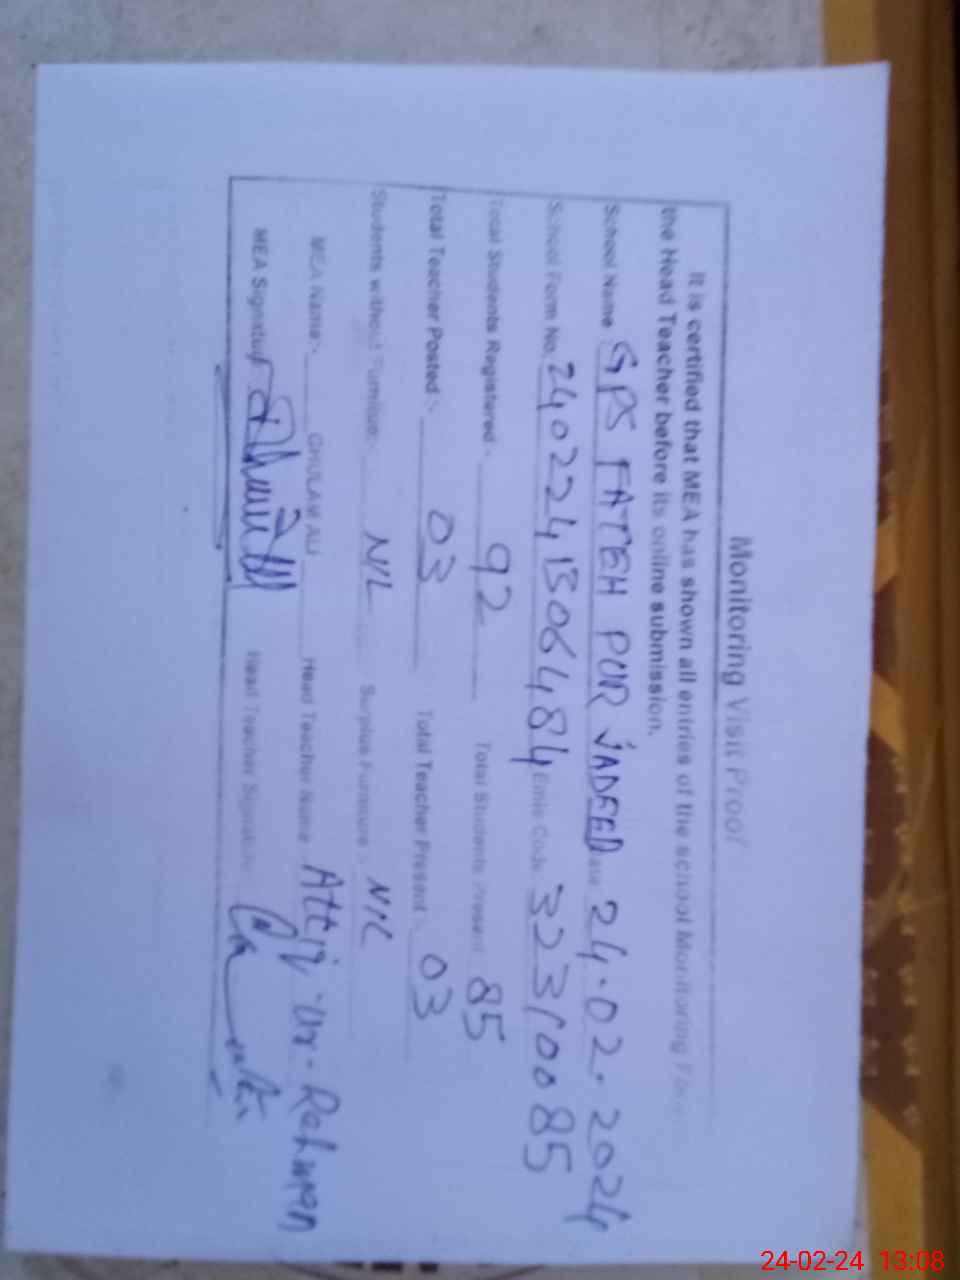 Monitoring Visit Proof
It is certified that MEA has shown all entries of the school Monitoring Form
the Head Teacher before its online submission.
School Name GPS FATEH PUR JADEED Date 24.02.2024
School Form No. 2402241306484 Emis Code 32310085
Total Students Registered:- 92 Total Students Present: 85
Total Teacher Posted:- 03 Total Teacher Present:- 03
Students without Furniture:- NIL Surplus Furniture:- NIL
MEA Name:- GHULAM ALI Head Teacher Name Attiq-ur-Rehman
MEA Signatur Head Teacher Signature
24-02-24 13:08